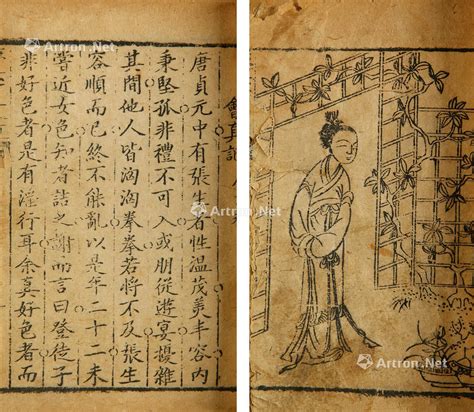 會真記
唐貞元中有張生者性溫茂美丰容內
秉堅孤非禮不可入或朋從遊宴擾雜
其間他人皆洶洶拳拳若將不及張生
容順而已終不能亂以是年二十二未
嘗近女色知者詰之謝而言曰登徒子
非好色者是有淫行耳余真好色者而
Artron.Net
Artron.Net
Artron.Net